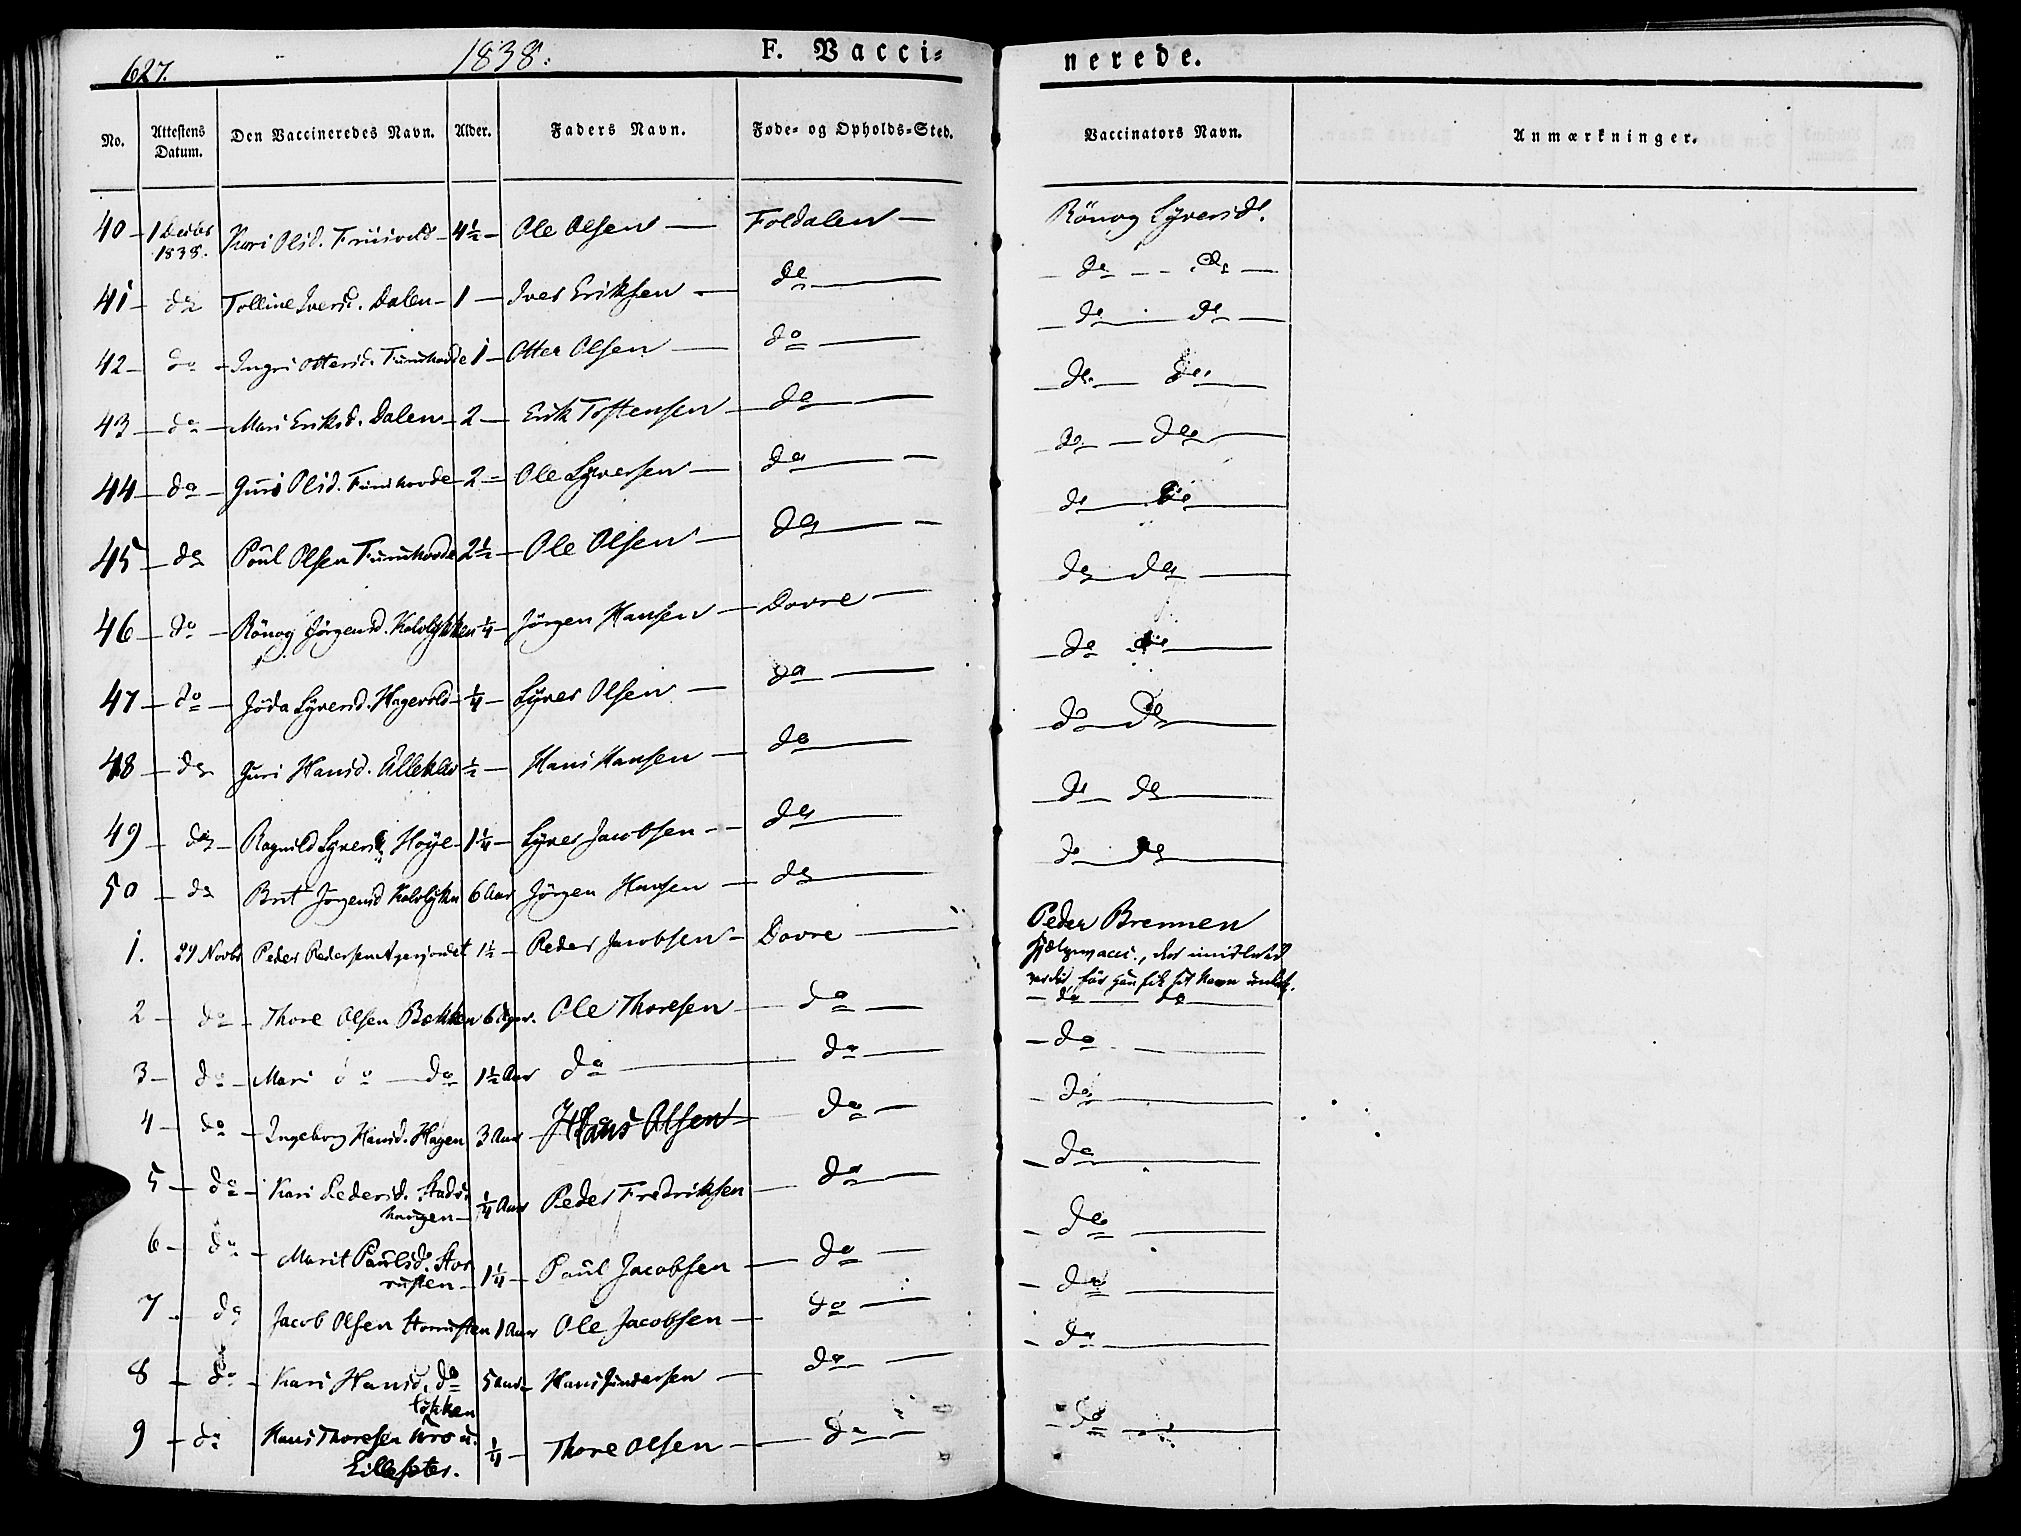 627.
1838.
F. Vacci-
nerede.
No.
Attestens Datum.
Den Vaccineredes Navn.
Alder.
Faders Navn.
Føde- og Opholds-Sted.
Vaccinators Navn.
Anmærkninger.
40 - 1 Decbr 1838. Kari Olsd. - 4½ - Ole Olsen - Foldalen - Rönog Syversd.
41 - do Tolline Iversd. Dalen - 1 - Iver Eriksen - do - do - do -
42 - do - Ingri Ottersd. - 1 - Otter Olsen - do - do - do -
43 - do - Mari Eriksd. Dalen - 2 - Erik Tostensen - do - do - do -
44 - do - Guri Olsd. - 2 - Ole Syversen - do - do - do -
45 - do Poul Olsen - 2½ - Ole Olsen - do - do - do -
46 - do - Rönog Jörgensd. Kolvlykken ¼ - Jörgen Hansen - Dovre - do - do -
47 - do - Jöda Syversd. Hagevold - ¼ - Syver Olsen - do - do do -
48 - do Guri Hansd. ½ - Hans Hansen - do - do - do -
49 - do - Ragnild Syversd Høÿe - 1¼ - Syver Jacobsen - do - do - do -
50 - do Brit Jörgensd Kolvlykn 6 Aar Jörgen Hansen - do - do - do -
1. 29 Novbr Peder Pedersen 1½ - Peder Jacobsen - Dovre - Peder Brennen
2 - do - Thore Olsen Bekken 6 Ole Thoresen - do - do - do -
3 - do - Mari do - do 1½ Aar do - do - do -
4 - do - Ingeborg Hansd. Hagen 3 Aar - Hans Olsen - do - do -
5 - do - Kari Pedersd. Stads-
haugen - ¼ Aar Peder Fredriksen - do - do -
6 - do - Marit Paulsd. Stor
rusten - 1¼ - Paul Jacobsen - do - do -
7 - do Jacob Olsen Storrusten 1 Aar Ole Jacobsen - do - do -
8 - do - Kari Hansd. do 5 Aar - Hans - do - do -
9 - do - Hans Thoresen
Lillesæter. ¼ - Thore Olsen - do - do -